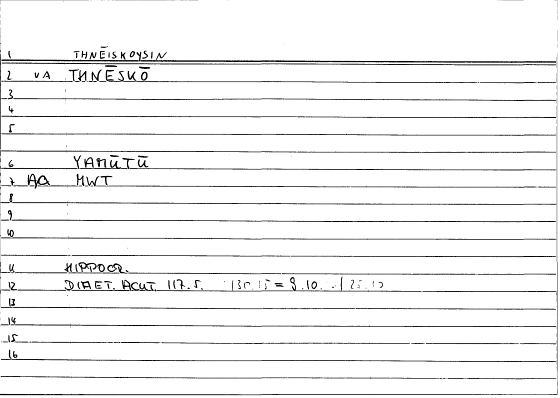 1 THNĒISKOYSIN
2 VA THNĒSKŌ
3
4
5
6 YAMŪTŪ
7 AQ MWT
8
9
10
11 HIPPOCR.
12 DIAET. ACUT. 117.5. 130.15 = 9.10.
13
14
15
16